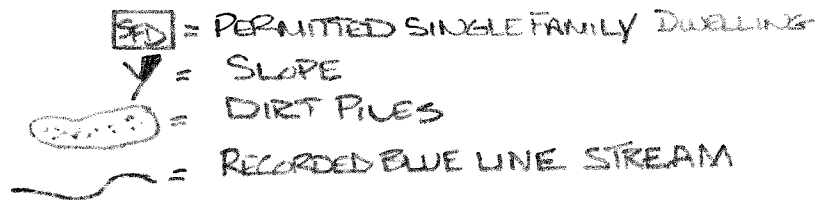 SFD = PERMITTED SINGLE FAMILY DWELLING
= SLOPE
= DIRT PILES
= RECORDED BLUE LINE STREAM